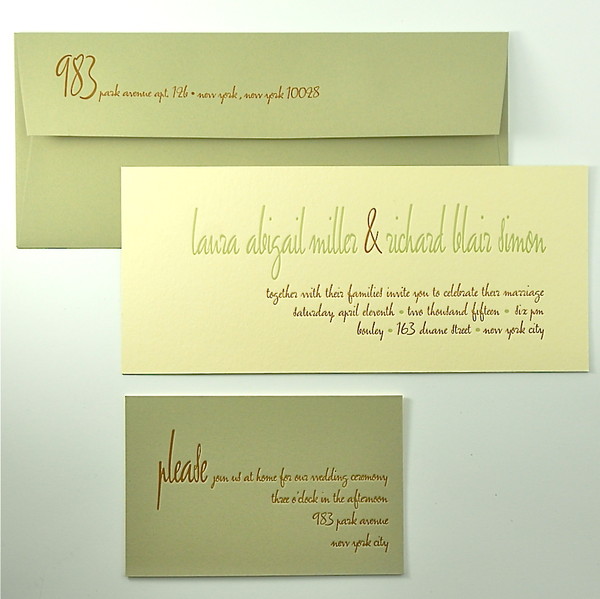 983 park avenue apt. 12b • new york, new york 10028
laura abigail miller & richard blair simon
together with their families invite you to celebrate their marriage
saturday, april eleventh • two thousand fifteen • six pm
bouley • 163 duane street • new york city
please join us at home for our wedding ceremony
three o'clock in the afternoon
983 park avenue
new york city